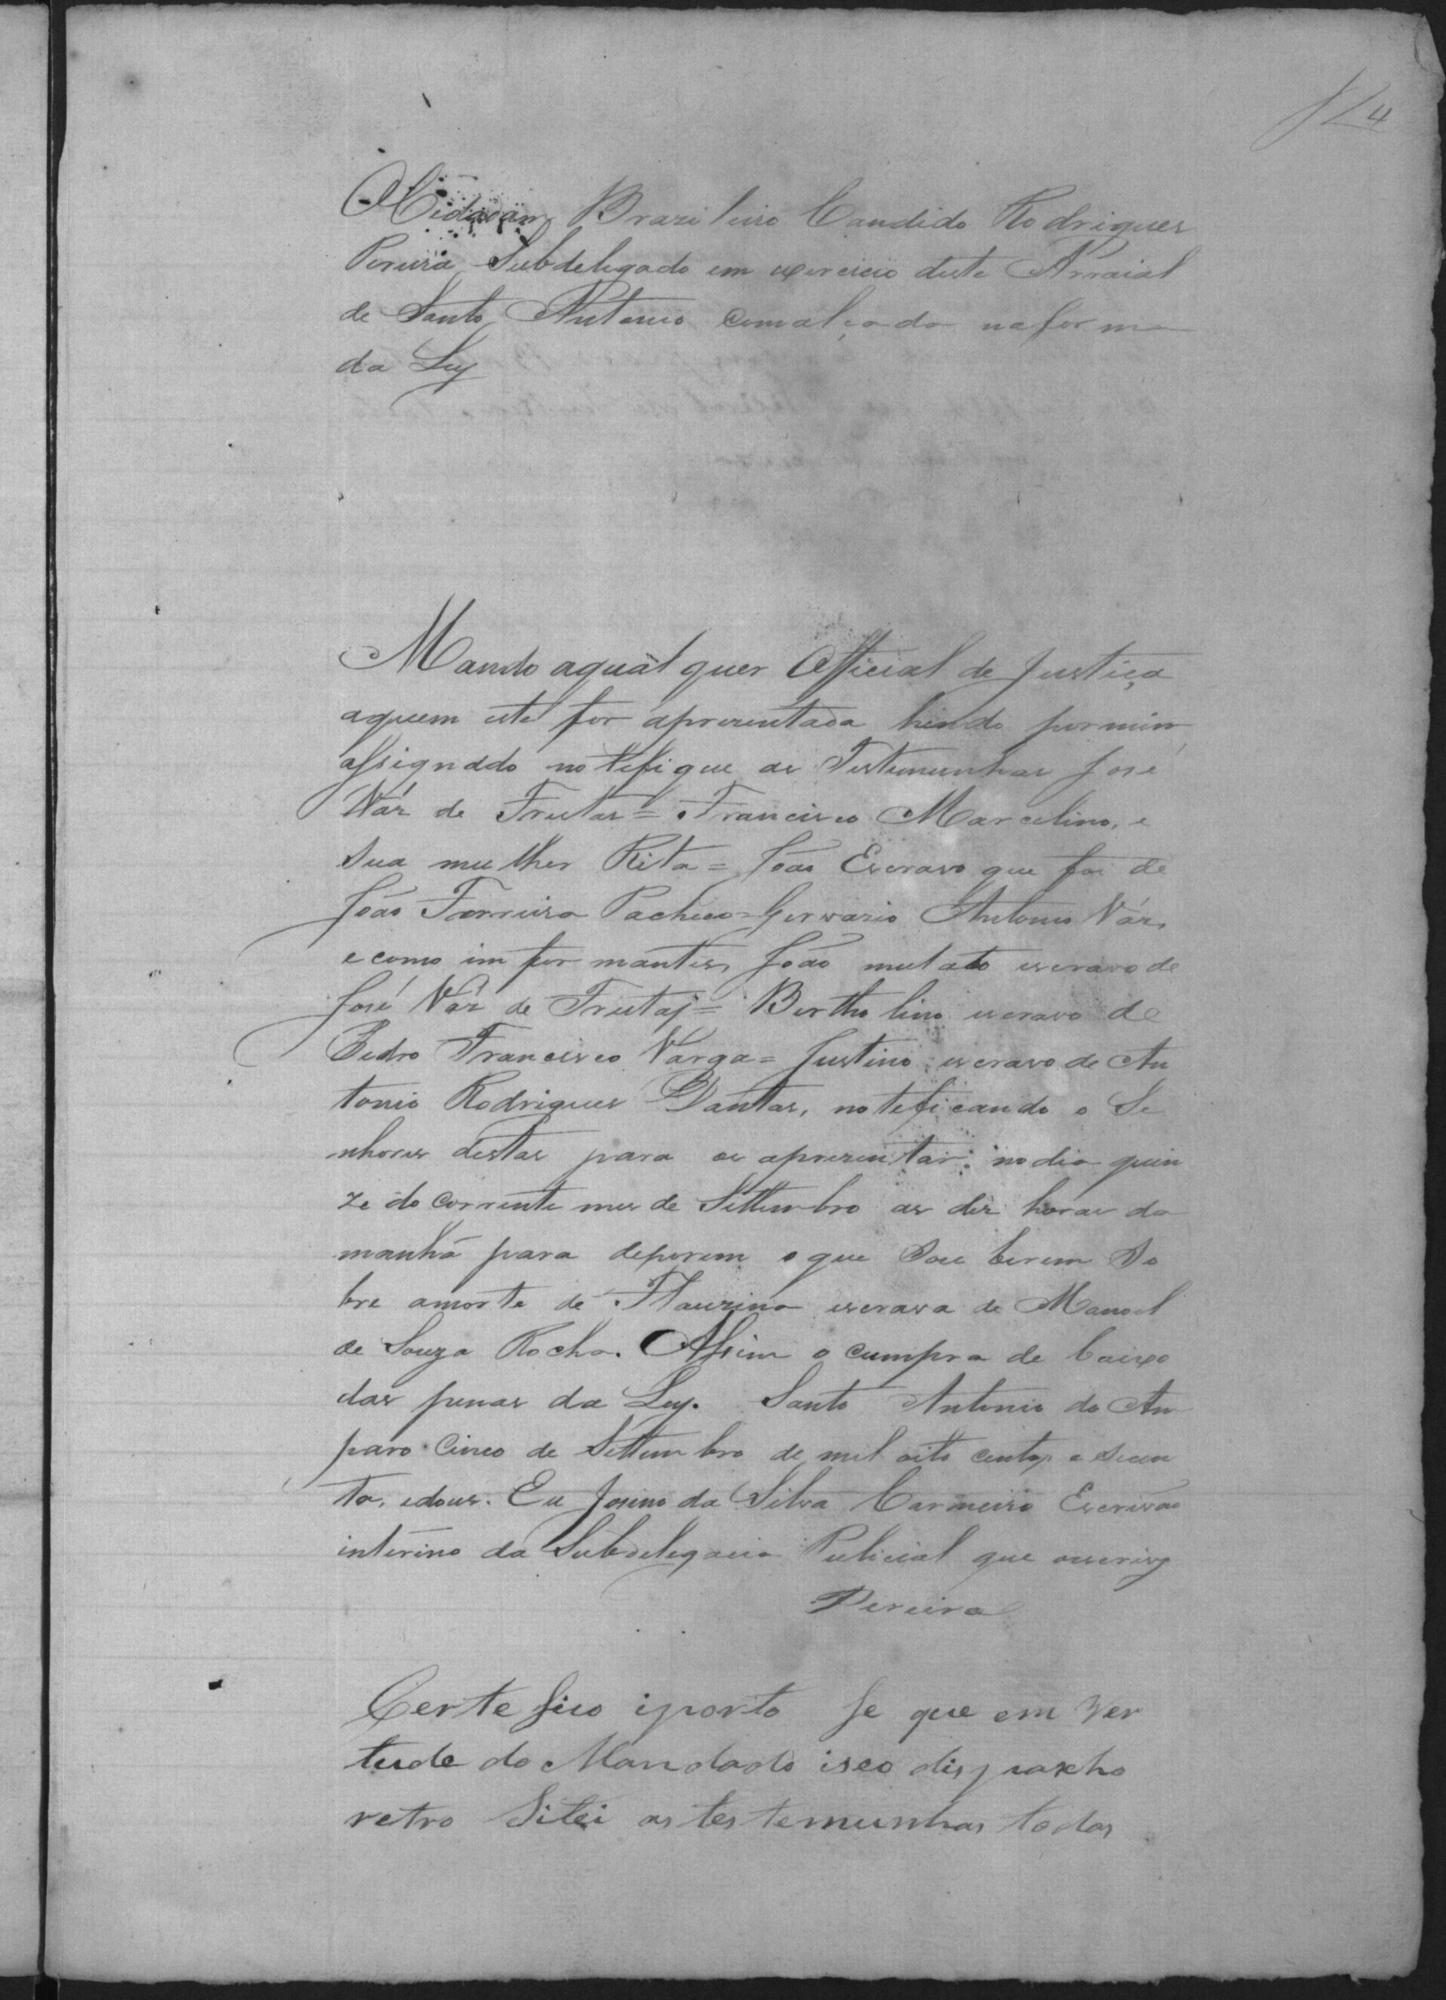 fl 4
O Cidadam Brazileiro Candido Rodrigues
Pereira Subdelegado em exercicio deste Arraial
de Santo Antonio comalçada na forma
da Ley
Mando aqualquer Official de Justiça
aquem este for aprezentada hindo pormim
assignado notefique as Testemunhas José
Váz de Freitas = Francisco Marcelino, e
sua mulher Rita = João Escravo que foi de
João Ferreira Pacheco = Gervazio Antonio Váz,
e como imformantes, João mulato escravo de
José Váz de Freitas = Bertholino escravo de
Pedro Francisco Varga = Justino escravo de An
tonio Rodrigues Dantas, noteficando o Se
nhores destas para as aprezentar, no dia quin
ze do corrente mes de Settembro as dez horas da
manhã para deporem o que Souberem So
bre amorte de Flauzina escrava de Manoel
de Souza Rocha. Assim o cumpra de baixo
das penas da Ley. Santo Antonio do Am
paro Cinco de Settembro de mil oito centos e secen
ta, edous. Eu Josino da Silva Carneiro Escrivão
interino da Subdelegacia Pulicial que oescrivy
Pereira
Certefico iporto fe que em Ver
tude do Mandado iseo dispaxho
retro Sitei as testemunhas todas